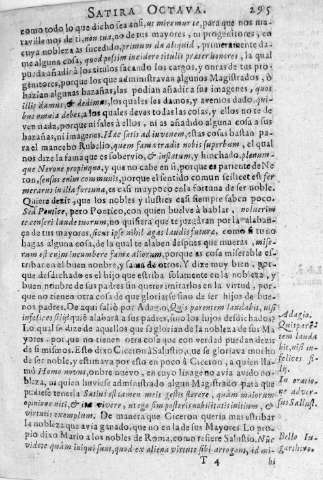 SATIRA OCTAVA. 295
como todo lo que dicho sea ansi, ut miremur te, para que nos ma-
ravillemos de ti, non tua, no de tus mayores, ni progenitores, en
cuya nobleza as sucedido, primum da aliquid, primeramente da-
me alguna cosa, quod possim incidere titulis praeter honores, la qual
pueda añadir à los titulos sacando los cargos, y onras de tus pro-
genitores, porque los que administravan algunos Magistrados, ò
hazian algunas bazañas, las podian añadir a sus imagenes, quos
illis damus, & dedimus, los quales les damos, y avemos dado, qui-
bus omnia debes, à los quales deves todas las cosas, y ellos no te de
ven nada, porque ni sales à ellos, ni as añadido alguna cosa a sus
hazañas, ni imagenes. Haec satis ad iuvenem, estas cosas bastan pa-
ra el mancebo Rubelio, quem fama tradit nobis superbum, el qual
nos dize la fama que es sobervio, & inflatum, y hinchado, plenum-
que Nerone propinquo, y que no cabe en si, porque es pariente de Ne-
ron, sensus enim communis, porque el sentido comun scilicet est fer
me rarus in illa fortuna, es casi muy poco en la fortuna de ser nobles.
Quiere dezir, que los nobles y ilustres casi siempre saben poco.
Sed Pontice, pero Pontico, con quien buelve à hablar, noluerim
te censeri laude tuorum, no quisiera que te juzgaran por la alaban-
ça de tus mayores, sic ut ipse nihil agas laudis futurae, como si tu no
hagas alguna cosa, de la qual te alaben despues que mueras, mise-
rum est enim incumbere famae aliorum, porque es cosa miserable es-
tribar en el buen nombre, y fama de otros. Y dize muy bien, por-
que desdichado es el hijo que estriba solamente en la nobleza, y
buen nombre de sus padres sin querer imitarlos en la virtud, por-
que no tienen otra cosa de que gloriarse sino de ser hijos de bue-
nos padres. De aqui saliò por Adagio, Qui parentem laudat, nisi
infelices filij: quien alabarà a sus padres, sino los hijos desdichados?
Lo qual se dize de aquellos que se glorian de la nobleza de sus Ma
yores, porque no tienen otra cosa que con verdad puedan dezir
de si mismos. Esto dixo Ciceron à Salustio, que se gloriava mucho
de ser noble, y estimava por esto en poco à Ciceron, a quien lla-
mò Homo novus, onbre nuevo, en cuyo linage no avia avido no-
bleza, ni quien huviese administrado algun Magistrado para que
pudiese tenerla
opinione niti, & ita vivere, ut ego sim posteris nobilitatis initium, &
virtutis exemplum. De manera que Ciceron queria mas estribar
la nobleza que avia ganado, que no en la de sus Mayores. Lo pro-
pio dixo Mario a los nobles de Roma, como refiere Salustio. Nunc
videte quàm iniqui sint, quod ex aliena virtute sibi arrogant, id mi-
T 4 hi
Adagio.
In oratio-
ne adver-
sus Sallust.
Bello Iu-
gurthino.